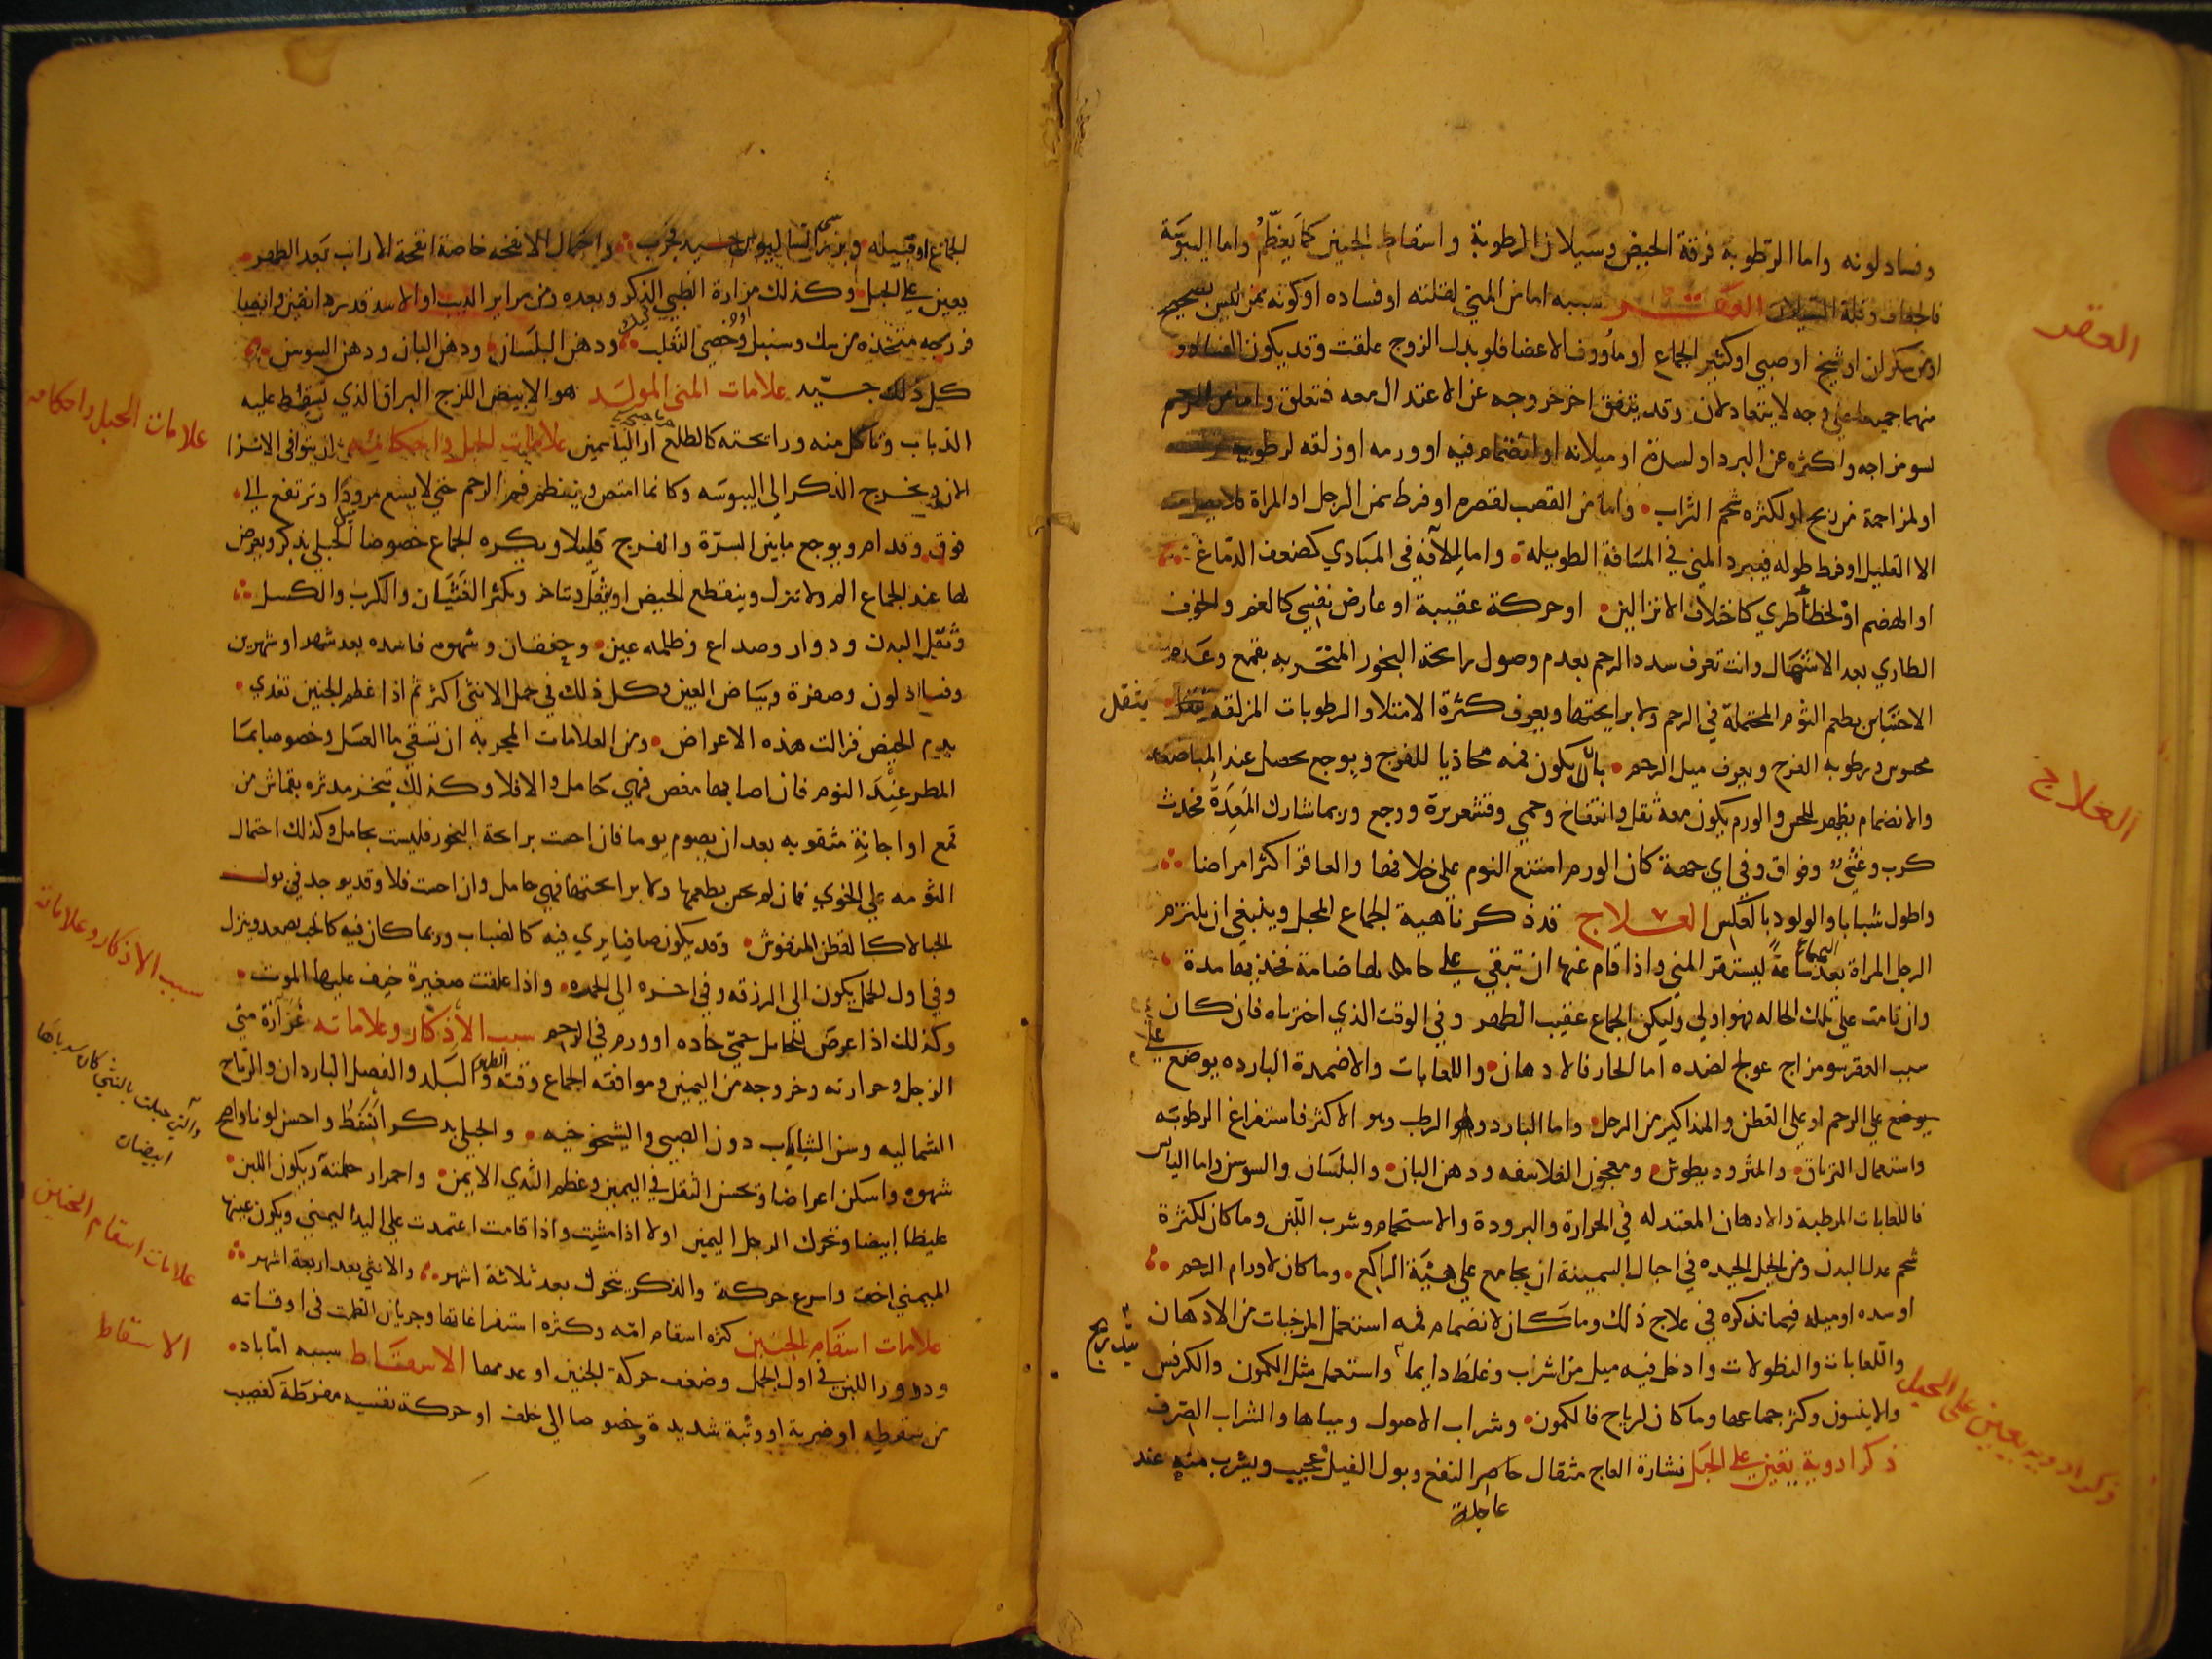 وفساد لونه واما الرطوبة فرقة الحيض وسيلان الرطوبة واسقاط الجنين كما يعظم واما اليبوسة
فالجفاف وقلة السيلان العقر سببه اما من المني لقلته او فساده او كونه ممن ليس بصحيح
العقر
او من سكران او شيخ او صبي او كثير الجماع او مأووف الاعضا فلو بدل الزوج علقت وقد يكون الفساد
منهما جميعا على وجه لا يتعادلان وقد يتفق اخر خروجه عن الاعتدال معه فتعلق واما من الرحم
لسو مزاجه واكثره عن البرد او لسدة او ميلانه او انضمام فيه او ورمه او زلقه لرطوبة
او لمزاحمة من ريح او لكثرة شحم الثراب واما من القضيب لقصره او فرط سمن الرجل او المراة
الا القليل او فرط طوله فيبرد المني في المسافة الطويلة واما لآفة في المبادي كضعف الدماغ
او الهضم او لخطأ طري كاختلاف الانزالين او حركة عقيبة او عارض نفسي كالغم والخوف
الطاري بعد الاشتمال وانت تعرف سدد الرحم بعدم وصول رائحة البخور المتخر به بقمع وعدم
الاحتباس بطعم الثوم المحتملة في الرحم ولا برائحتها ويعرف كثرة الامتلا والرطوبات المزلقة
بثقل
محسوس ورطوبة الفرج ويعرف ميل الرحم بان يكون فمه محاذيا للفرج وبوجع يحصل عند المباضعة
والانضمام يظهر للحس والورم يكون معه ثقل وانتفاخ وحمى وقشعريرة ووجع وربما شارك المعدة فحدث
العلاج
كرب وغثي وفواق وفي اي جهة كان الورم امتنع النوم على خلافها والعاقر اكثر امراضا
واطول شبابا والولود بالعكس العلاج قد ذكرنا هيئة الجماع المحبل وينبغي ان يلتزم
الرجل المراة بعد الجماع ساعة ليستقر المني واذا قام عنها ان تبقي على حاملها ضامة فخذيها مدة
وان نامت على تلك الحاله فهو اولى وليكن الجماع عقيب الطهر وفي الوقت الذي اخترناه فان كان
سبب العقر سو مزاج عولج بضده اما الحار فالادهان واللعابات والاضمدة الباردة يوضع على
يوضع على الرحم او على القطن والمذاكير من الرجل واما البارد والرطب وهو الاكثر فاستفراغ الرطوبة
واستعمال الترياق والمثروديطوش ومعجون الفلاسفه ودهن البان والبلسان والسوسن واما اليابس
فاللعابات المرطبة والادهان المعتدله في الحرارة والبرودة والاستحمام وشرب اللبن وما كان لكثرة
شحم عدل البدن ومن الحيل الجيدة في احبال السمينة ان يجامع على هيئة الراكع وما كان لاورام الرحم
او سدة او ميله فيما نذكره في علاج ذلك وما كان لانضمام فمه استعمل المرخيات من الادهان
واللعابات والنظولات وادخل فيه ميل من اشرب وغلظ دايما واستعمل مثل الكمون والكرفس
والاينسون وكثر جماعها وما كان لرياح فالكمون وشراب الاصول ومياها والشراب الصرف
ذكر ادوية يعين على الحبل
ذكر ادوية تعين على الحبل نشارة العاج مثقال حاضر النفع وبول الفيل عجيب ويشرب منه عند
عاجلة
الجماع او قبيله وبزر مجرب واحتمال الانفحه خاصة انفحة الارانب بعد الطهر
يعين على الحبل وكذلك مرارة الظبي الذكر وبعده ومن مراير الذيب او الاسد قدر دانقين وايضا
فرزجه متخذه من سك وسنبل وخصي الثعلب ودهن البلسان ودهن البان ودهن السوسن
كل ذلك جيد علامات المني المولد هو الابيض اللزج البراق الذي يسقط عليه
علامات الحبل واحكامه
الذباب وتاكل منه ورائحته كالطلع او الياسمين علامات الحبل واحكامه ان يتوافي الانزا
لان ويخرج الذكر الى اليبوسه وكانما امتص وينضم فم الرحم حتى لا يسع مرودا وترتفع الى
فوق وقدام وبوجع ما بين السرة والفرج قليلا ويكره الجماع خصوصا الحبلى بذكر ويعرض
لها عند الجماع الم ولا تنزل وينقطع الحيض او يقل وتتاخر ويكثر الغثيان والكرب والكسل
وثقل البدن ودوار وصداع وظلمه عين وخفقان وشهوه فاسده بعد شهر او شهرين
وفساد لون وصفرة وبياض العين وكل ذلك في حمل الانثى اكثر ثم اذا عظم الجنين تغذي
بدم الحيض فزالت هذه الاعراض ومن العلامات المجربة ان تسقى ما العسل وخصوصا بما
المطر عند النوم فان اصابها مغص فهي حامل والا فلا وكذلك تبخر مدثره بقماش من
قمع او اجانة مثقوبه بعد ان يصوم يوما فان احست برائحة البخور فليست بحامل وكذلك احتمال
الثومه على الخوي فان لم تحس بطعمها ولا برائحتها فهي حامل وان احست فلا وقد يوجد في بول
سبب الاذكار وعلاماته
الحبالا كالقطن المنفوش وقد يكون صافيا يرى فيه كالضباب وربما كان فيه كالحب يصعد وينزل
وفي اول الحمل يكون الى الزرقه وفي اخره الى الحمره واذا علقت صغيرة خيف عليها الموت
وكذلك اذا عرض للحامل حمى حاده او ورم في الرحم سبب الاذكار وعلاماته غزارة مني
الرجل وحرارته وخروجه من اليمين وموافقة الجماع وقت الطهر والبلد والفصل الباردان والرياح
الشماليه وسن الشباب دون الصبي والشيخوخيه والحبلى بذكر انشط واحسن لونا واصح
ابيضان
شهوه واسكن اعراضا وتحس الثقل في اليمين وعظم الثدي الايمن واحمرار حلمته ويكون اللبن
علامات اسقام الجنين
غليظا ابيضا وتحرك الرجل اليمين اولا اذا مشيت واذا قامت اعتمدت على اليد اليمنى ويكون عينها
اليمنى اخف واسرع حركة والذكر يتحرك بعد ثلاثة اشهر والانثى بعد اربعة اشهر
علامات اسقام الجنين كثرة اسقام امه وكثرة استفراغاتها وجريان الطمث في اوقاته
الاسقاط
ودرور اللبن في اول الحمل وضعف حركة الجنين او عدمها الاسقاط سببه اما باد
من سقطه او ضربة او وثبة شديدة وخصوصا الى خلف او حركة نفسيه مفرطة كغضب